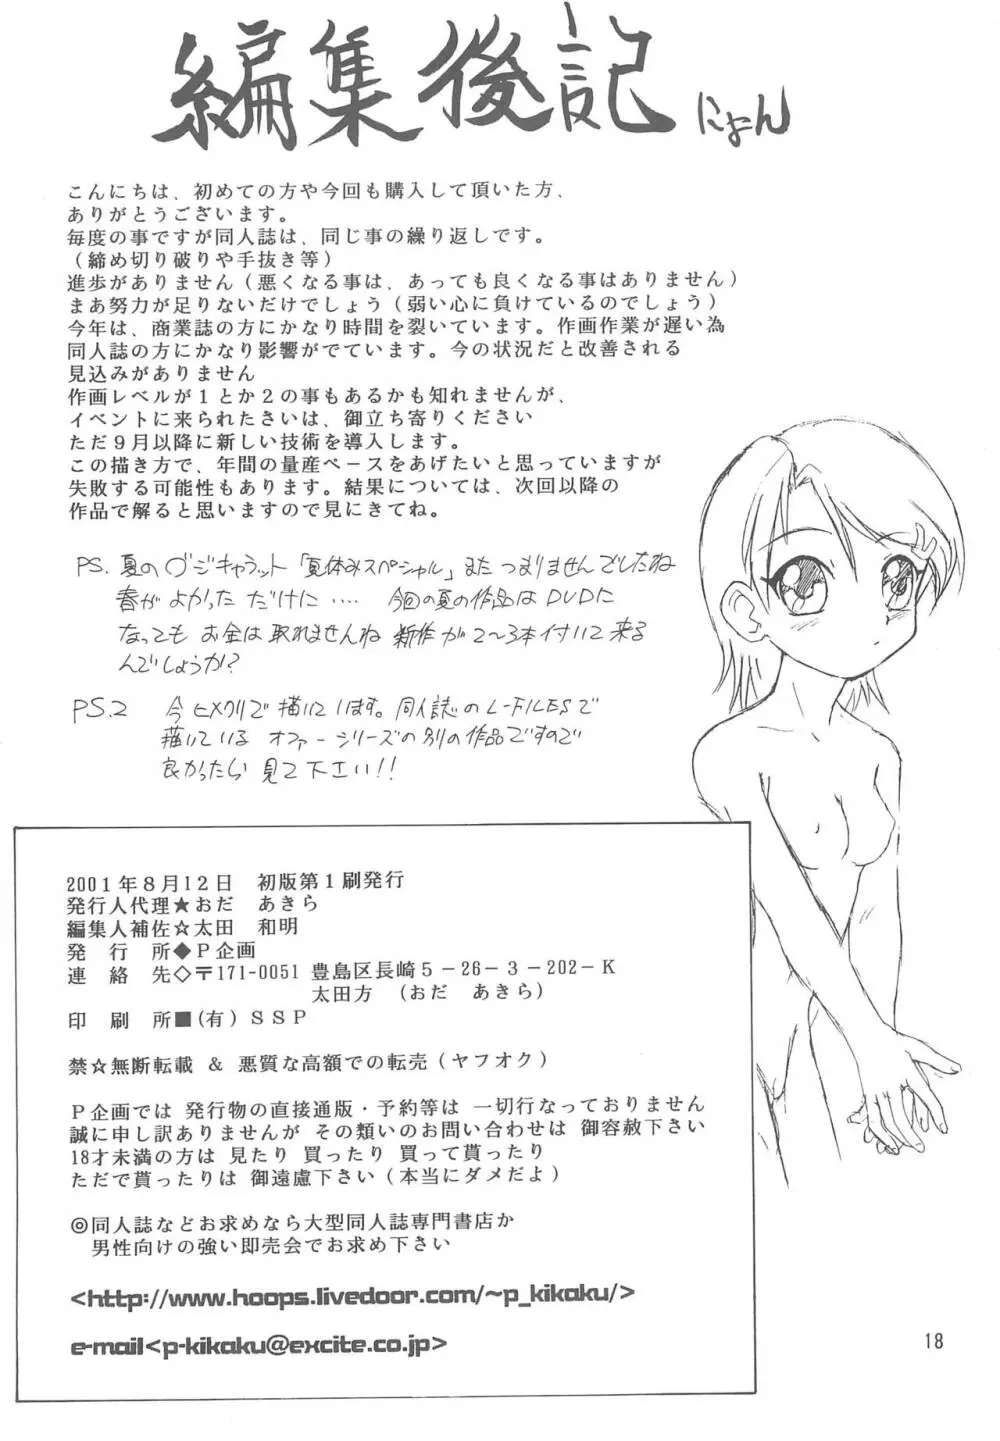 編集後記 にょん
こんにちは、初めての方や今回も購入して頂いた方、
ありがとうございます。
毎度の事ですが同人誌は、同じ事の繰り返しです。
（締め切り破りや手抜き等）
進歩がありません（悪くなる事は、あっても良くなる事はありません）
まあ努力が足りないだけでしょう（弱い心に負けているのでしょう）
今年は、商業誌の方にかなり時間を裂いています。作画作業が遅い為
同人誌の方にかなり影響がでています。今の状況だと改善される
見込みがありません
作画レベルが１とか２の事もあるかも知れませんが、
イベントに来られたさいは、御立ち寄りください
ただ９月以降に新しい技術を導入します。
この描き方で、年間の量産ペースをあげたいと思っていますが
失敗する可能性もあります。結果については、次回以降の
作品で解ると思いますので見にきてね。
PS. 夏のデジキャラット「夏休みスペシャル」またつまりませんでしたね
春がよかっただけに‥‥ 今回の夏の作品はDVDに
なってもお金は取れませんね 新作が2〜3本付いて来る
んでしょうか?
PS.2 今ヒメクリで描いています。同人誌のL-FILESで
描いている オファーシリーズの別の作品ですので
良かったら 見て下さい!!
2001年８月12日 初版第１刷発行
発行人代理★おだ あきら
編集人補佐☆太田 和明
発 行 所◆Ｐ企画
連 絡 先◇〒171-0051 豊島区長崎５－26－３－202－Ｋ
太田方 （おだ あきら）
印 刷 所■(有) ＳＳＰ
禁☆無断転載 ＆ 悪質な高額での転売（ヤフオク）
Ｐ企画では 発行物の直接通販・予約等は 一切行なっておりません
誠に申し訳ありませんが その類いのお問い合わせは 御容赦下さい
18才未満の方は 見たり 買ったり 買って貰ったり
ただで貰ったりは 御遠慮下さい（本当にダメだよ）
◎同人誌などお求めなら大型同人誌専門書店か
男性向けの強い即売会でお求め下さい
<http://www.hoops.livedoor.com/~p_kikaku/>
e-mail<p-kikaku@excite.co.jp>
18